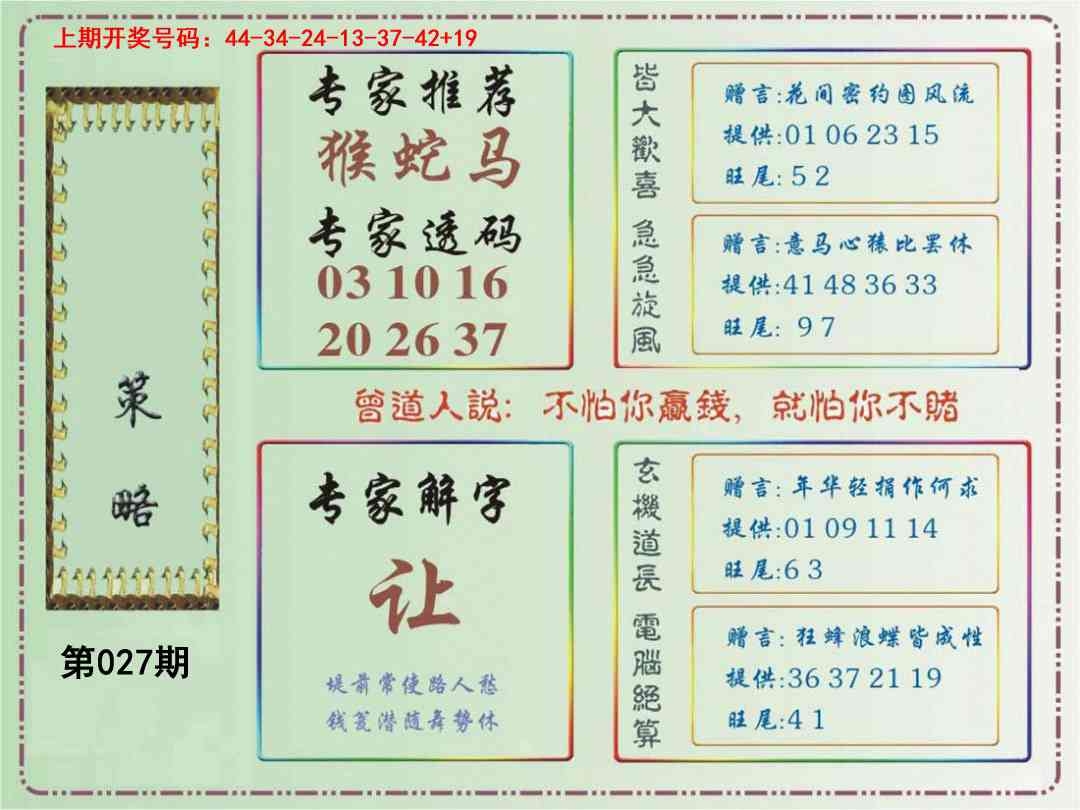 上期开奖号码：44-34-24-13-37-42+19
策略
第027期
专家推荐
猴蛇马
专家透码
03 10 16
20 26 37
皆大歡喜
赠言:花间密约图风流
提供:01 06 23 15
旺尾: 5 2
急急旋風
赠言:意马心猿比罢休
提供:41 48 36 33
旺尾: 9 7
曾道人説: 不怕你赢錢, 就怕你不賭
专家解字
让
堤前常使路人愁
钱笺潜随舞势休
玄機道長
赠言: 年华轻捐作何求
提供:01 09 11 14
旺尾:6 3
電腦絕算
赠言: 狂蜂浪蝶皆成性
提供:36 37 21 19
旺尾:4 1